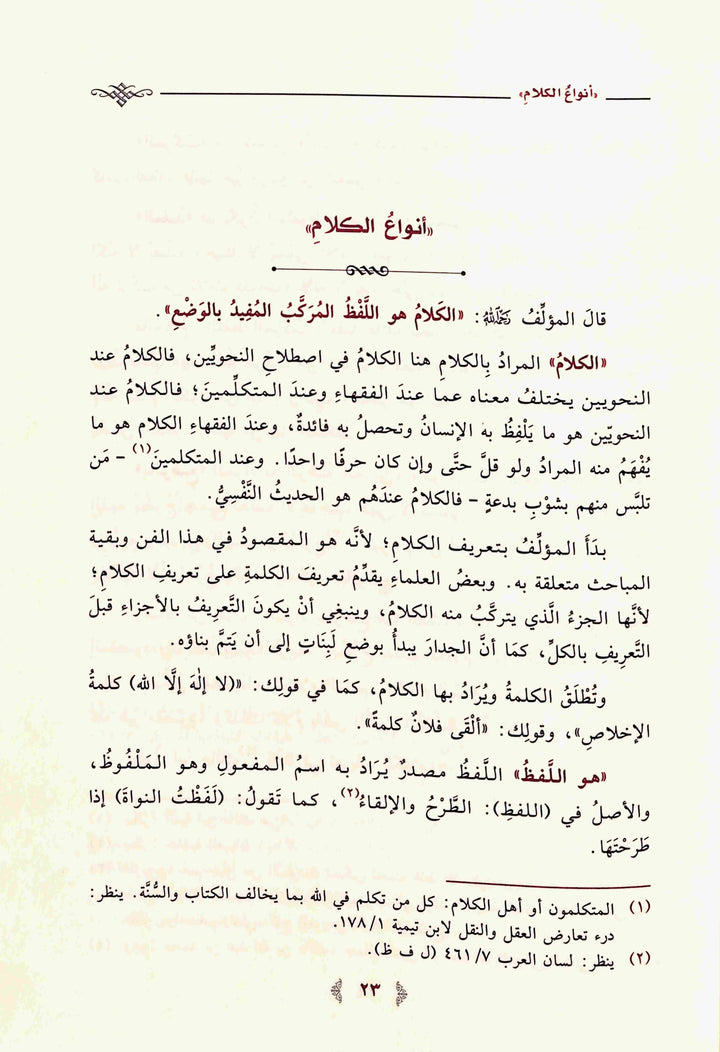 «أنواعُ الكلامِ»
«أنواعُ الكلامِ»
قالَ المؤلِّفُ رَحِمَهُ اللهُ: «الكَلامُ هو اللَّفْظُ المُرَكَّبُ المُفِيدُ بالوَضْعِ».
«الكلامُ» المرادُ بِالكلامِ هنا الكلامُ في اصطلاحِ النحويِّين، فالكلامُ عند
النحويين يختلفُ معناه عما عندَ الفقهاءِ وعندَ المتكلِّمينَ؛ فالكلامُ عند
النحويّين هو ما يَلْفِظُ به الإنسانُ وتحصلُ به فائدةٌ، وعندَ الفقهاءِ الكلام هو ما
يُفْهَمُ منه المرادُ ولو قلَّ حتَّى وإن كان حرفًا واحدًا. وعند المتكلمينَ(١) – مَن
تلبَّس منهم بشوْبِ بدعةٍ – فالكلامُ عندَهُم هو الحديثُ النَّفْسِيُّ.
بدَأَ المؤلِّفُ بتعريف الكلامِ؛ لأنَّه هو المقصودُ في هذا الفن وبقية
المباحث متعلقة به. وبعضُ العلماءِ يقدِّمُ تعريفَ الكلمةِ على تعريفِ الكلامِ؛
لأنَّها الجزءُ الَّذي يتركَّبُ منه الكلامُ، وينبغِي أنْ يكونَ التَّعرِيفُ بالأجزاءِ قبلَ
التَّعريفِ بالكلِّ، كمَا أنَّ الجدارَ يبدأُ بوضعِ لَبِنَاتٍ إلى أن يَتمَّ بناؤه.
وتُطْلَقُ الكلمةُ ويُرَادُ بها الكلامُ، كمَا في قولِك: «(لا إلٰهَ إلَّا الله) كلمةُ
الإخلاصِ»، وقولِك: «ألْقَى فلانٌ كلمةً».
«هو اللَّفظُ» اللَّفظُ مصدرٌ يُرَادُ به اسمُ المفعولِ وهو المَلْفُوظُ،
والأصلُ في (اللفظِ): الطَّرْحُ والإلقاءُ(٢)، كما تَقولُ: (لَفَظْتُ النواةَ) إذا
طَرَحْتَهَا.
(١) المتكلمون أو أهل الكلام: كل من تكلم في الله بما يخالف الكتاب والسُّنَّة. ينظر:
درء تعارض العقل والنقل لابن تيمية ١/ ١٧٨.
(٢) ينظر: لسان العرب ٧/ ٤٦١ (ل ف ظ).
٢٣